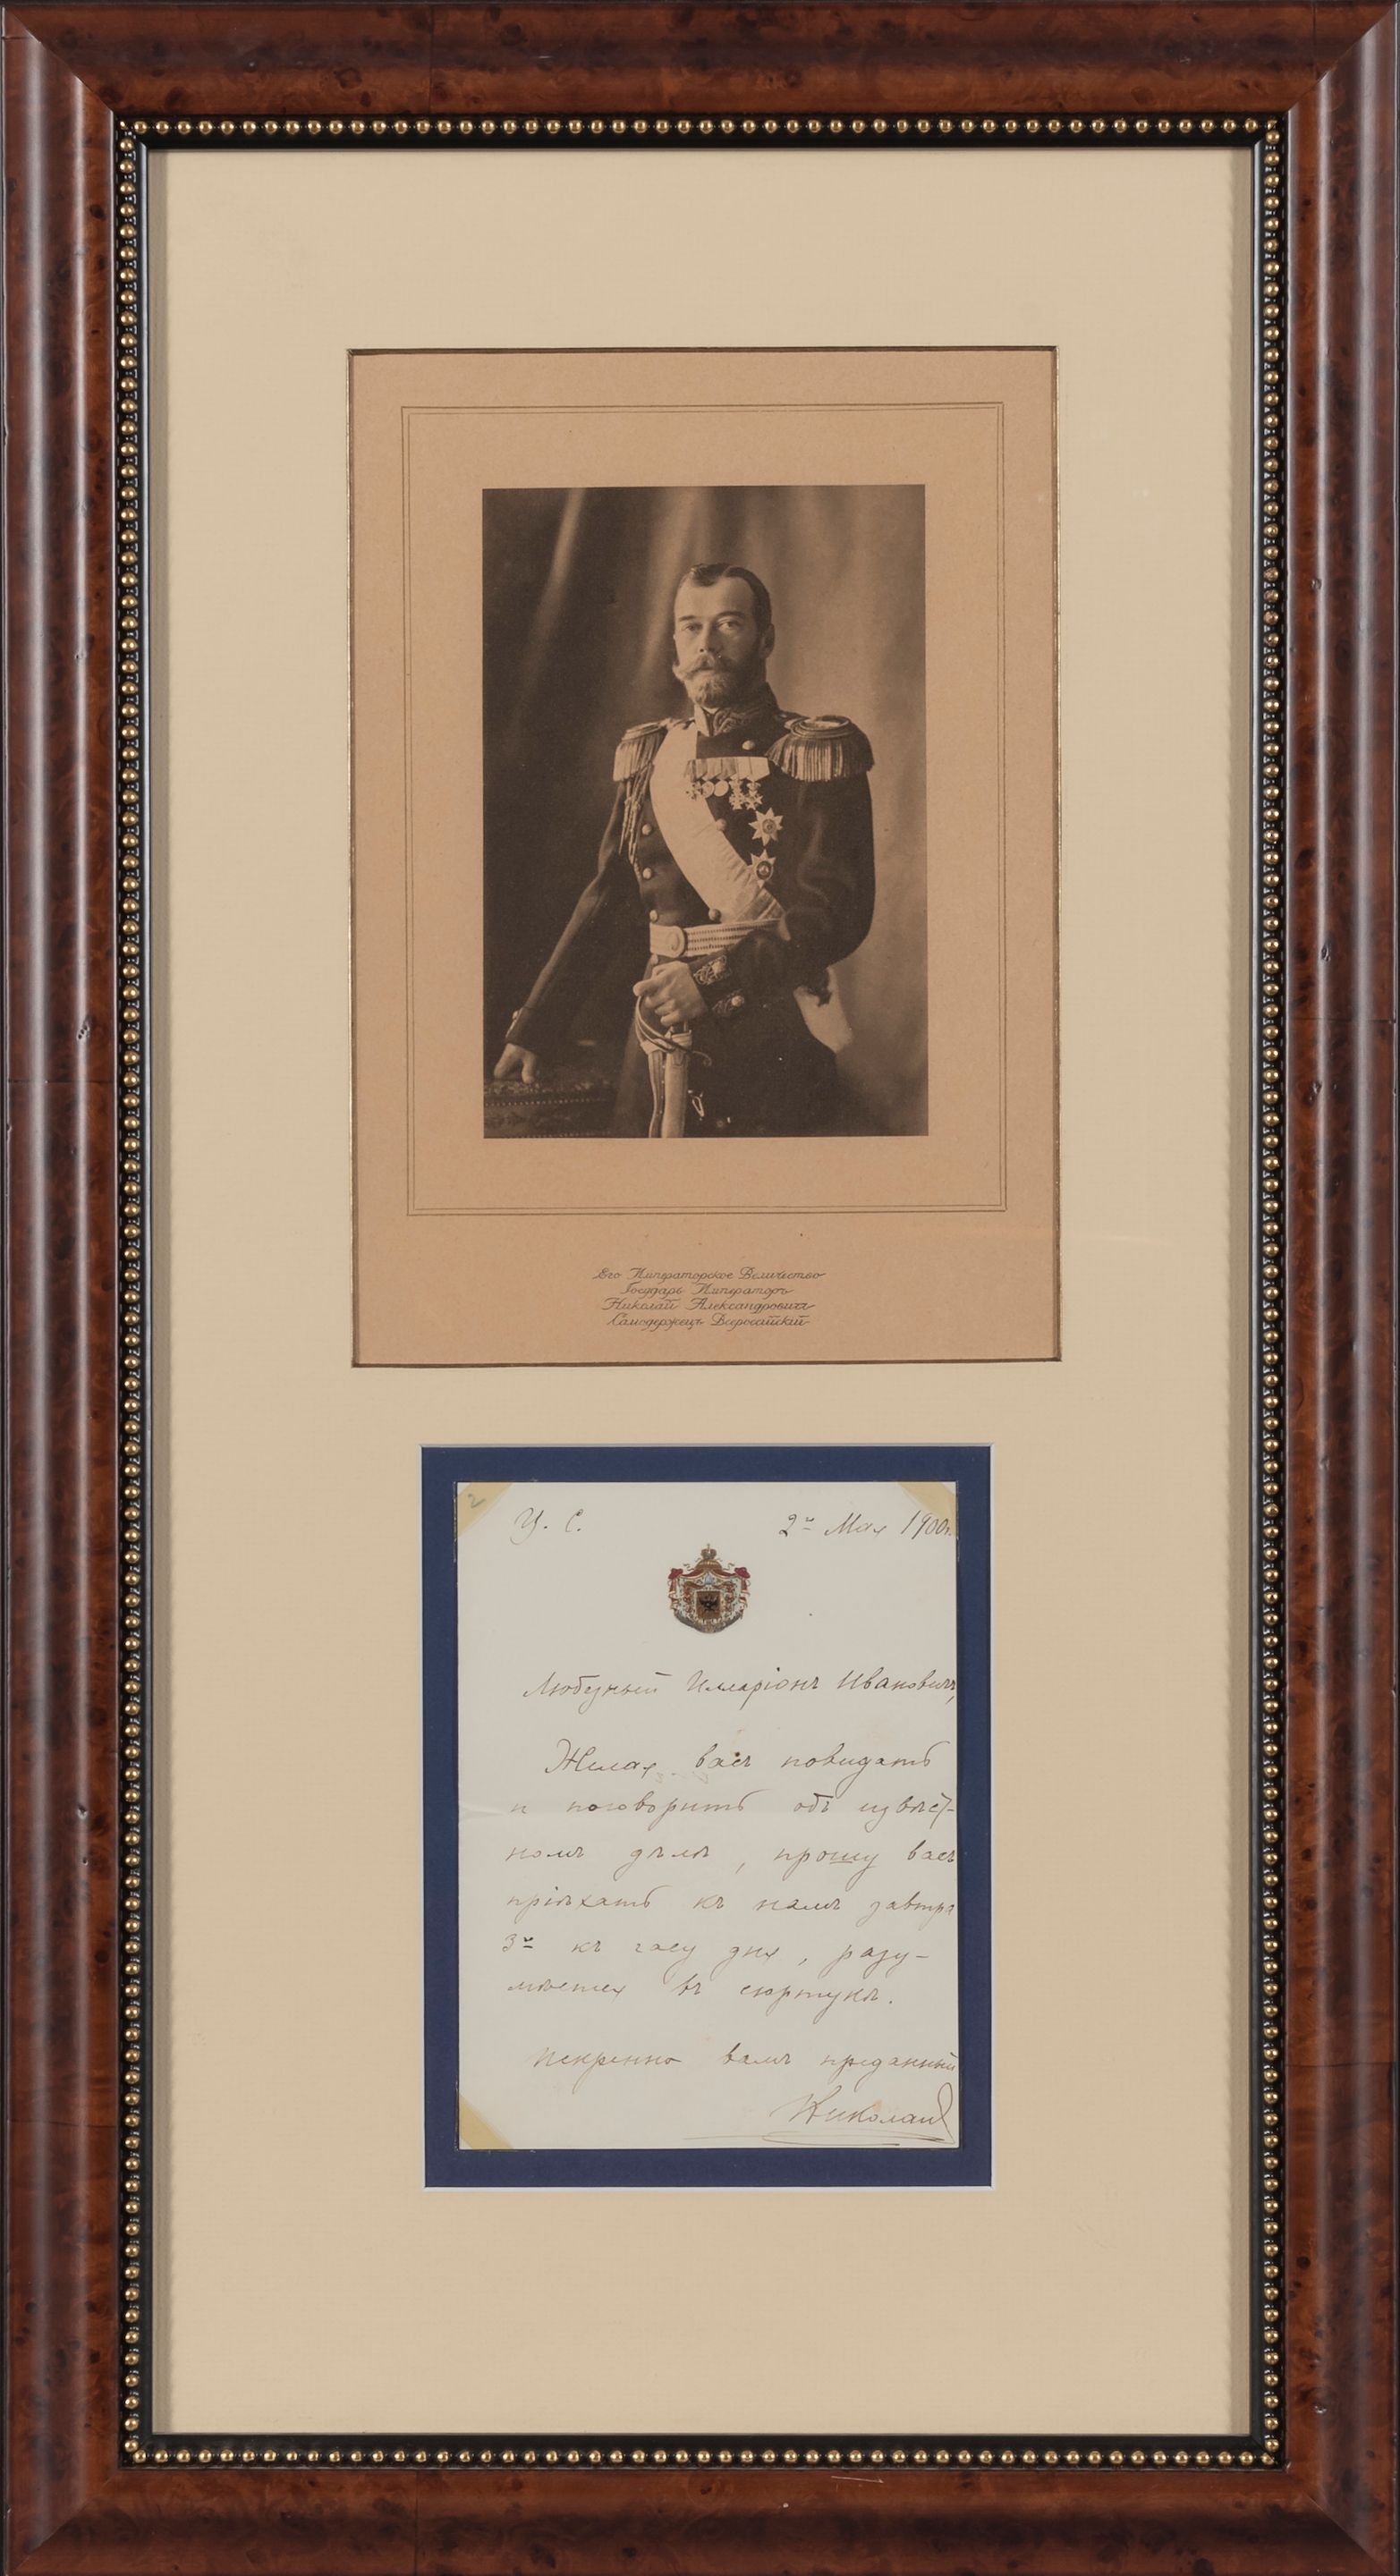 Его Императорское Величество
Государь Императоръ
Николай Александровичъ
Самодержецъ Всероссійскій
2
Ц. С.
2го Мая 1900г.
Любезный Илларіонъ Ивановичъ,
Желая васъ повидать
и поговорить объ извѣст-
номъ дѣлѣ, прошу васъ
пріѣхать къ намъ завтра
3го къ часу дня, разу-
мѣется въ сюртукѣ.
Искренно вамъ преданный
Николай